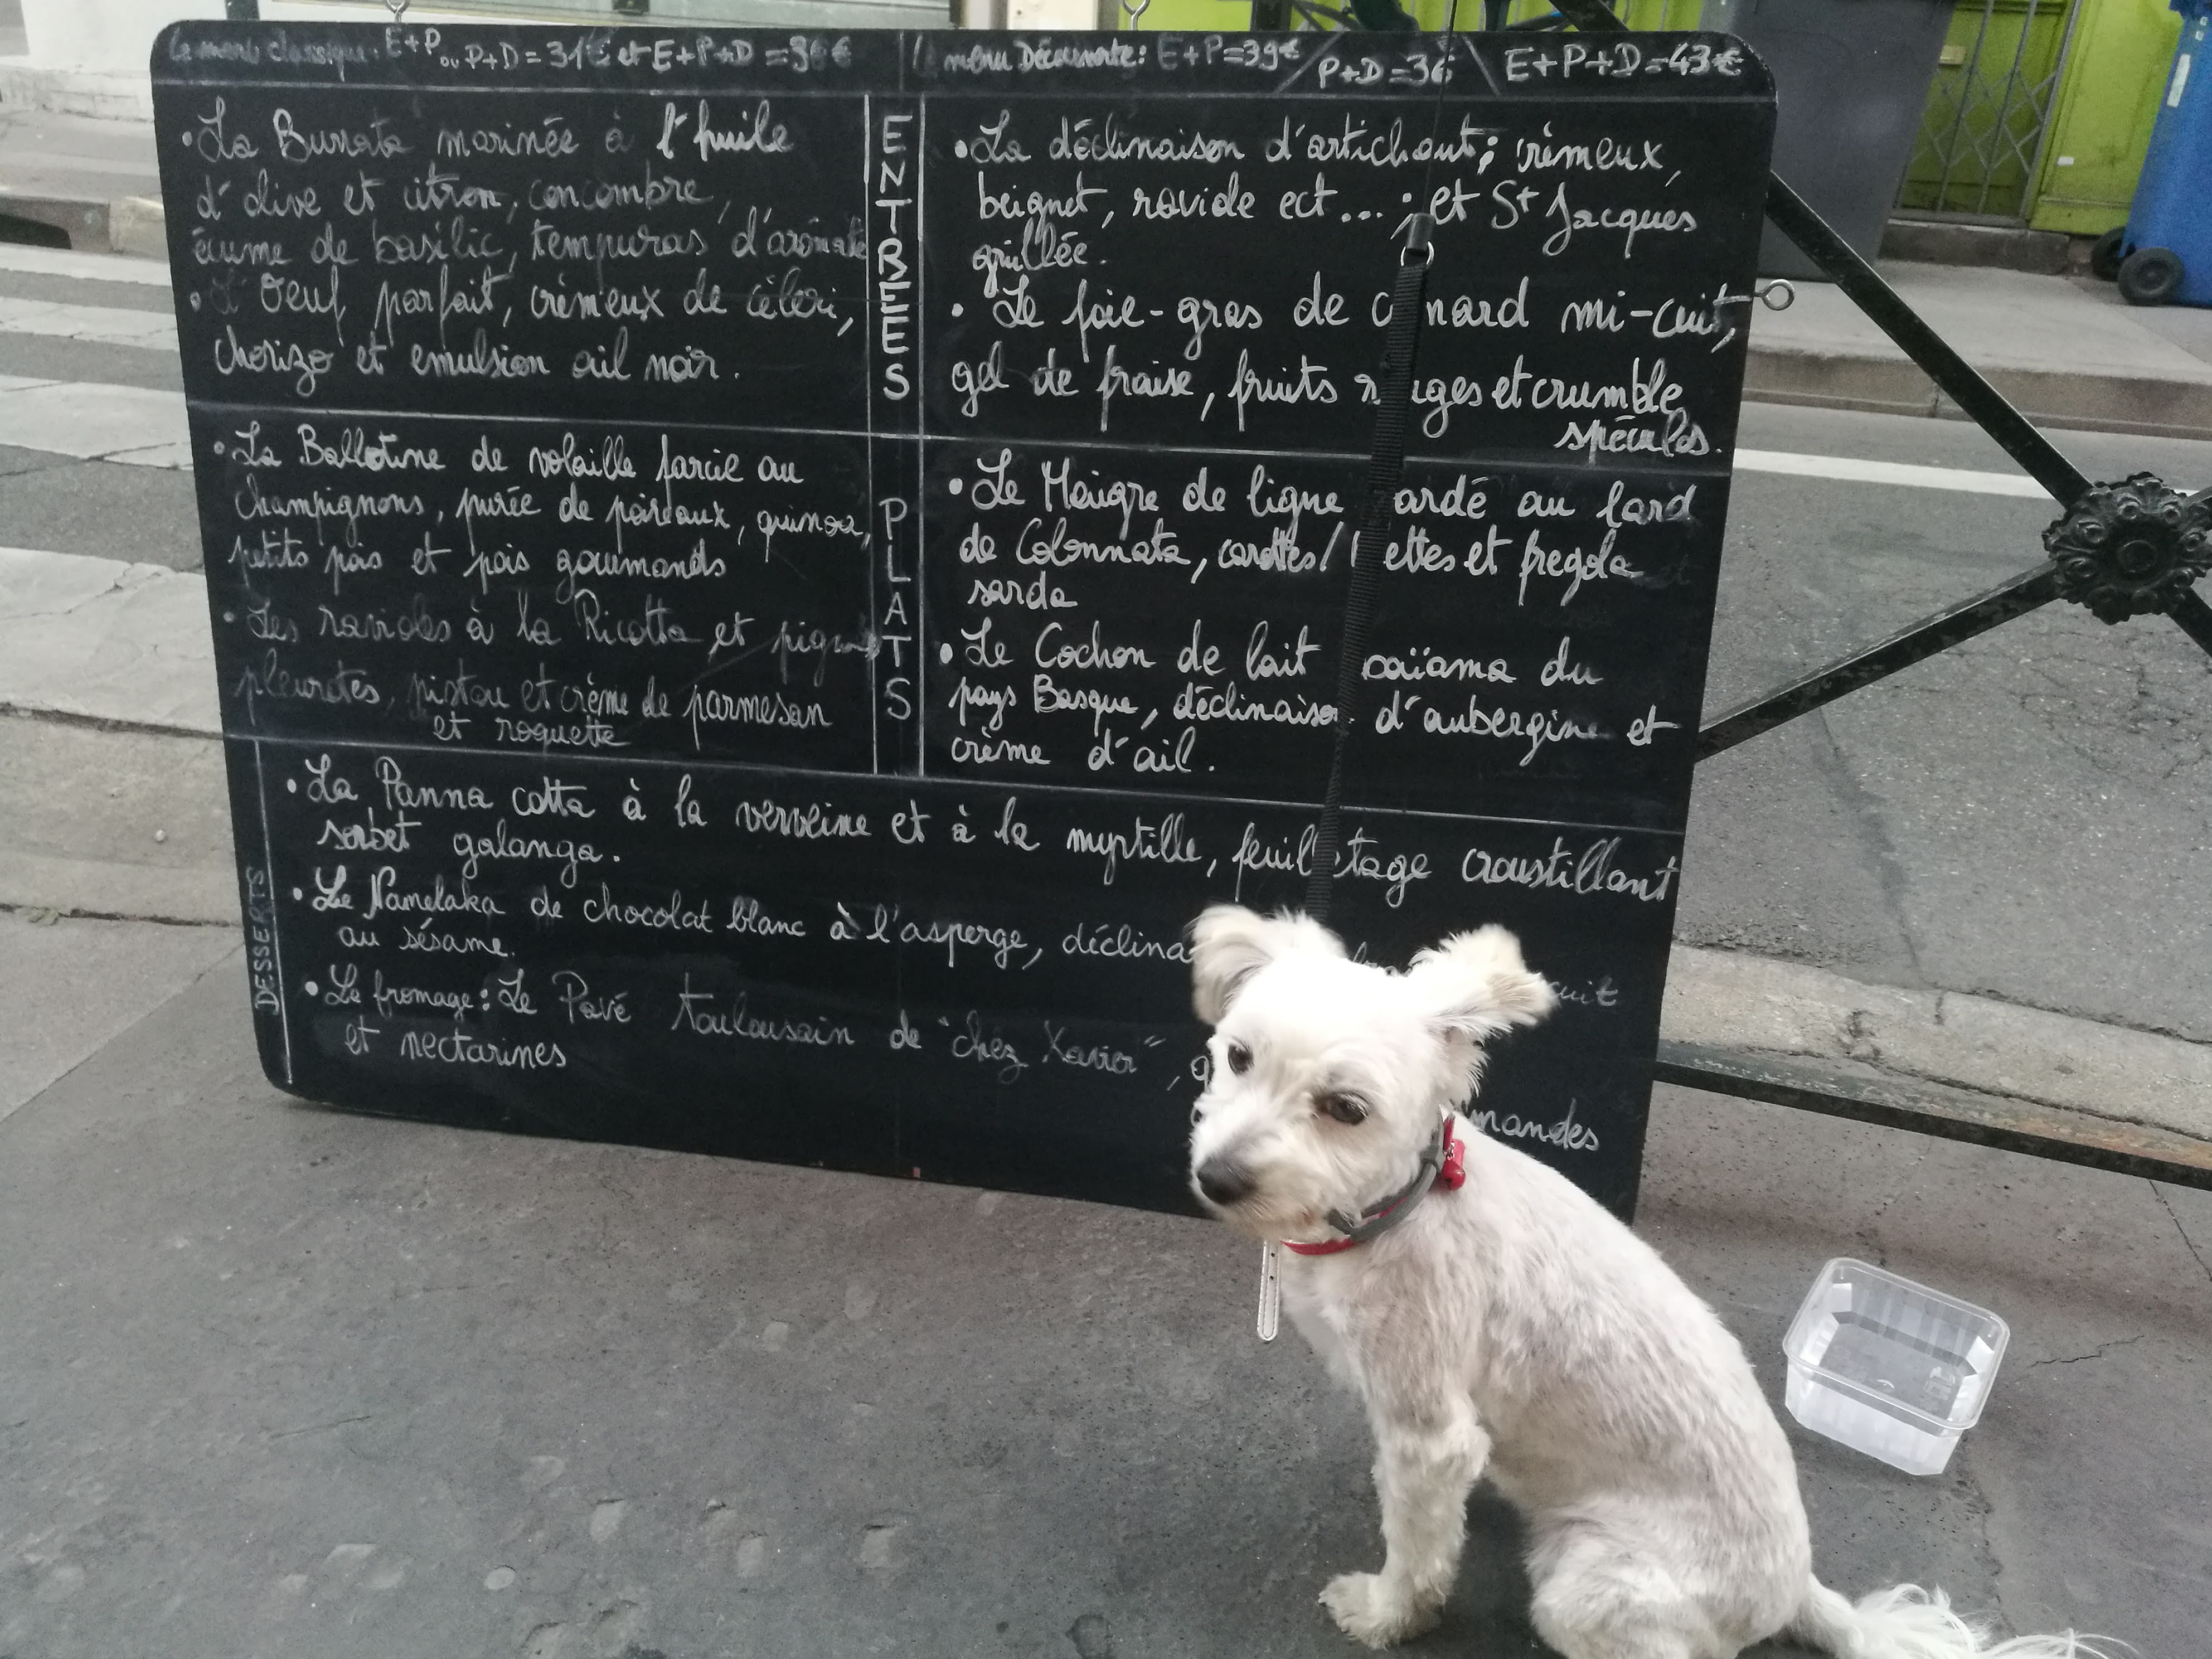 Le menu classique: E+P ou P+D = 31€ et E+P+D = 36€
Le menu Découverte: E+P=39€ / P+D=36 \ E+P+D=43€
ENTREES
• La Burrata marinée à l'huile
d'olive et citron, concombre,
écume de basilic, tempuras d'aromate
• L'Oeuf parfait, crémeux de céleri,
chorizo et emulsion ail noir.
• La déclinaison d'artichaut; crémeux,
beignet, raviole ect...; et St Jacques
grillée.
• Le foie-gras de c nard mi-cuit,
gel de fraise, fruits r uges et crumble
spéculos.
PLATS
• La Ballotine de volaille farcie au
champignons, purée de poireaux, quinoa,
petits pois et pois gourmands
• Les ravioles à la Ricotta et
pleurotes, pistou et crème de parmesan
et roquette
• Le Maigre de ligne ardé au lard
de Colonnata, carottes/ ettes et fregola
sarda
• Le Cochon de lait oaïama du
pays Basque, déclinaison d'aubergine et
crème d'ail.
DESSERTS
• La Panna cotta à la verveine et à la myrtille, feuilletage croustillant
sorbet galanga.
• Le Namelaka de chocolat blanc à l'asperge, déclina cuit
au sésame.
• Le fromage: Le Pavé toulousain de "chez Xavier", mandes
et nectarines